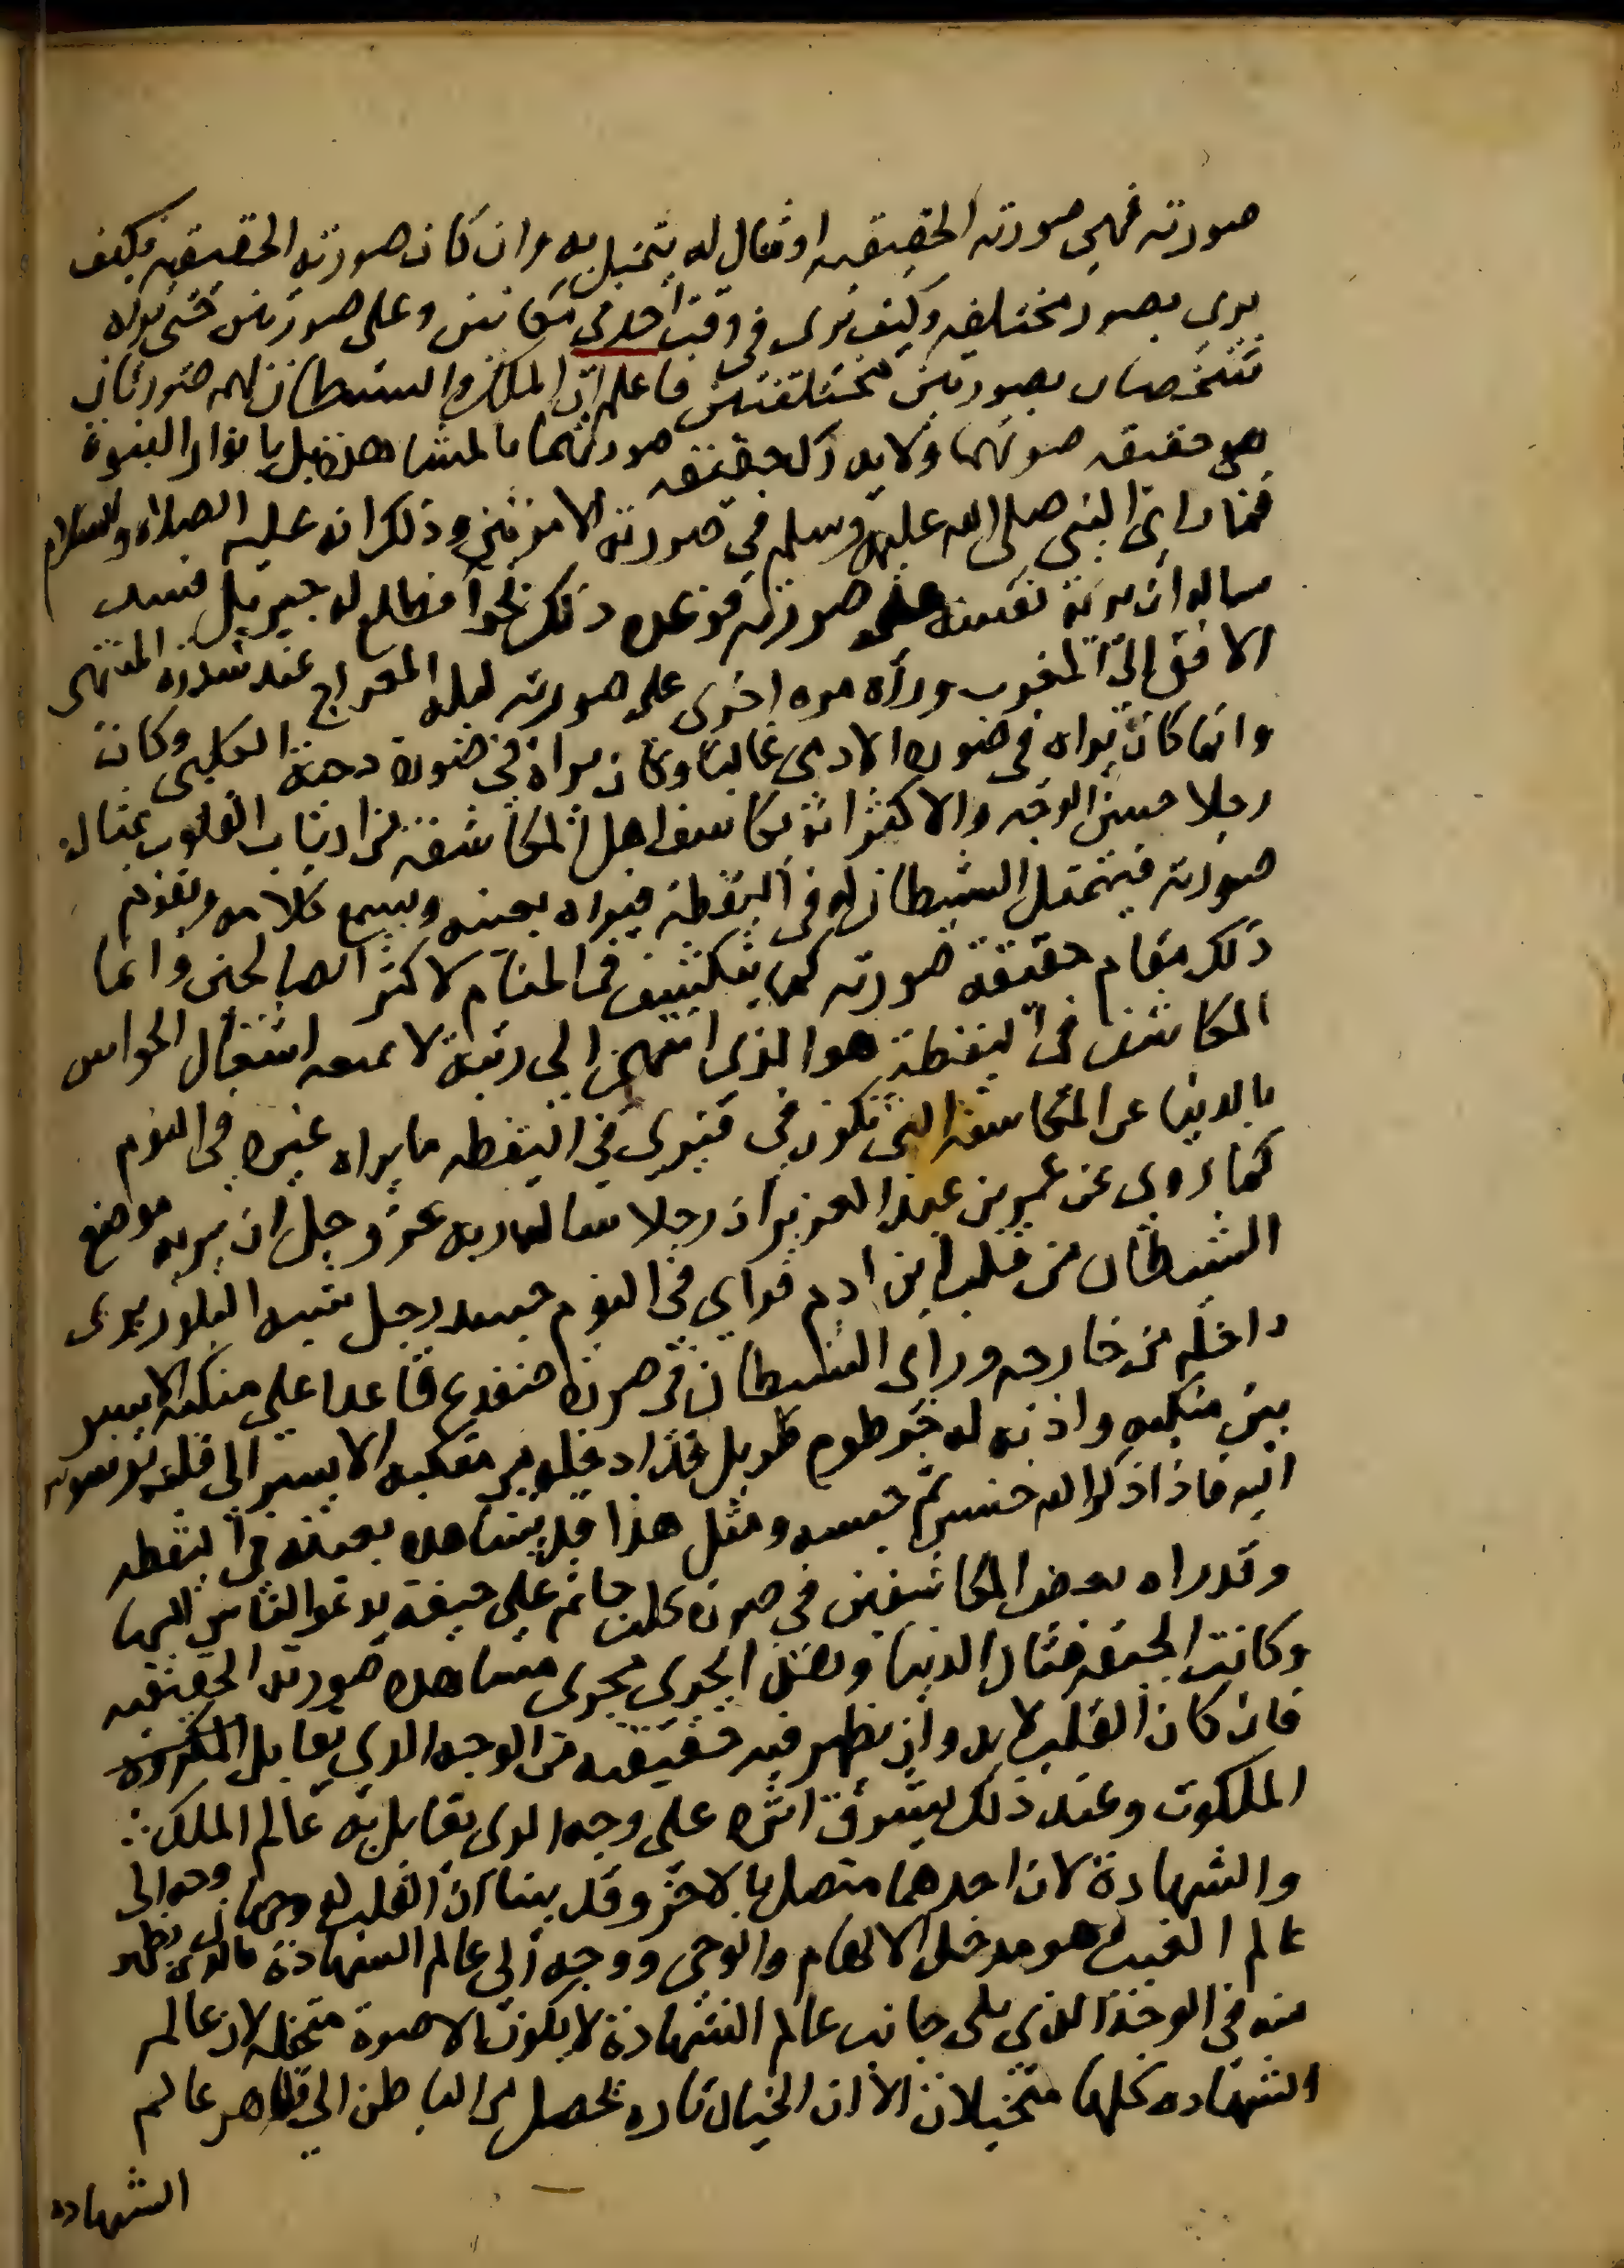 صورته فهي صورته الحقيقيه او مثال له يتخيل به وان كان صورته الحقيقيه فكيف
يرى بصور مختلفه وكيف يرى في وقت احد في مكانين وعلى صورتين حتى يراه
شخصان بصورتين مختلفتين فاعلم ان الملك والشيطان لهم صورتان
هي حقيقه صورتهما ولا يدرك حقيقه صورتهما بالمشاهدة بل بانوار النبوة
فما راى النبي صلى الله عليه وسلم في صورته الا مرتين وذلك انه عليه الصلاه والسلام
ساله ان يريه نفسه على صورته فوعده ذلك فطلع له جبريل فسد
الافق الى المغرب وراه مره اخرى على صورته ليلة المعراج عند سدرة المنتهى
وانما كان يراه في صورة الادمي غالبا وكان يراه في صورة دحية الكلبي وكان
رجلا حسن الوجه والاكثر انه يكاشف اهل المكاشفة من ارباب القلوب بمثال
صورته فيتمثل الشيطان له في اليقظة فيراه بعينه ويسمع كلامه ويقوم
ذلك مقام حقيقة صورته كما ينكشف في المنام لاكثر الصالحين وانما
المكاشف في اليقظة هو الذي انتهى الى رتبة لا يمنعه اشتغال الحواس
بالدنيا عن المكاشفة التي تكون في فيرى في اليقظه ما يراه غيره في النوم
كما روى عن عمر بن عبد العزيز ان رجلا سال ربه عز وجل ان يريه موضع
الشيطان من قلب ابن ادم فراى في النوم جسد رجل شبه البلور يرى
داخله من خارجه وراى الشيطان في صورة ضفدع قاعدا على منكبه الايسر
بين منكبه واذنه له خرطوم طويل قد ادخله من منكبه الايسر الى قلبه يوسوس
اليه فاذا ذكر الله خنس ومثل هذا قد يشاهد بعينه في اليقظه
وقد راه بعض المكاشفين في صورة كلب جاثم على جيفة يدعو الناس اليها
وكانت الجيفه مثال الدنيا وهذا يجري مجرى مشاهدة صورته الحقيقيه
فان كان القلب لا بد وان يظهر فيه حقيقه من الوجه الذي يقابل
الملكوت وعند ذلك يشرق اثره على وجه الذي يقابل به عالم الملك
والشهادة لان احدهما متصل بالاخر وقد بينا ان القلب له وجهان وجه الى
عالم الغيب هو مدخل الالهام والوحي ووجه الى عالم الشهادة فالذي يظهر
منه في الوجه الذي يلي جانب عالم الشهادة لا يكون الا صورة متخيله لان عالم
الشهاده كلها متخيلات الا ان الخيال تاره يحصل من الباطن الى ظاهر عالم
الشهاده